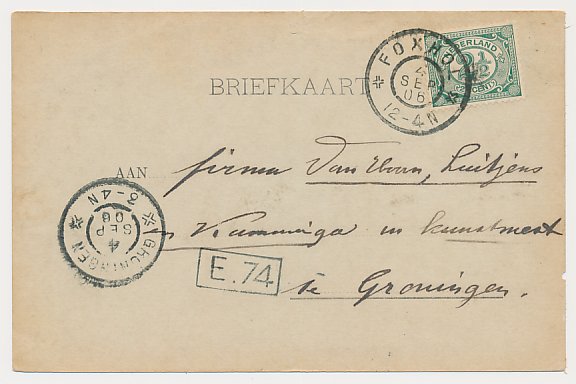 FOXHO
4
SEP
06
12-4N
NEDERLAND
2½
CENT
BRIEFKAART
AAN firma
en Kamminga in kunstmest
te Groningen.
E.74
GRONINGEN
4
SEP
06
3-4N